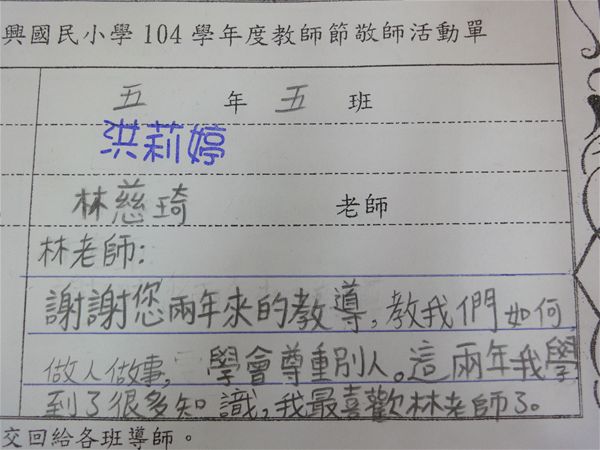 興國民小學104學年度教師節敬師活動單
五年五班
洪莉婷
林慈琦 老師
林老師:
謝謝您兩年來的教導,教我們如何
做人做事,學會尊重別人。這兩年我學
到了很多知識,我最喜歡林老師了。
交回給各班導師。